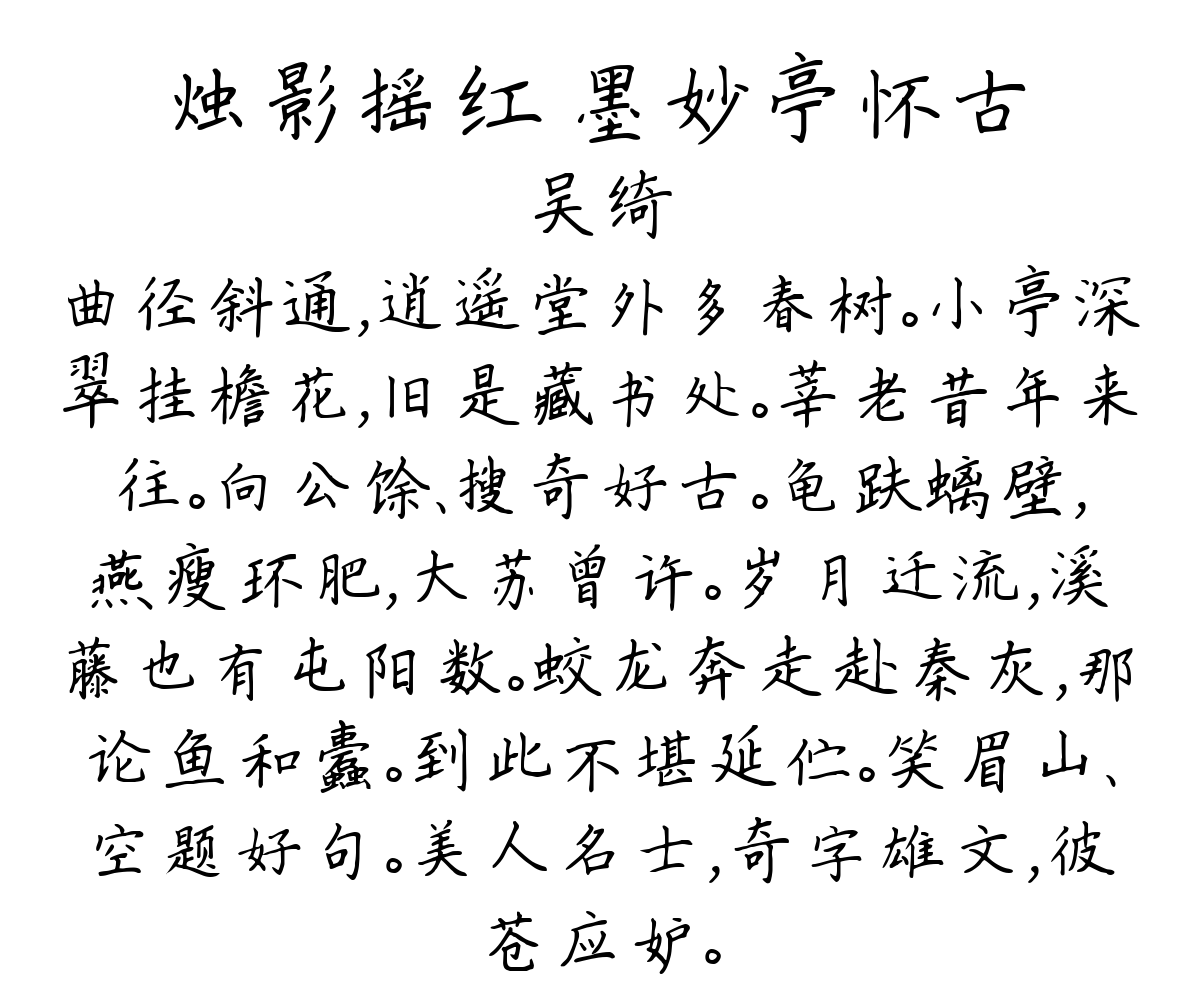 烛影摇红 墨妙亭怀古
吴绮
曲径斜通,逍遥堂外多春树。小亭深
翠挂檐花,旧是藏书处。莘老昔年来
往。向公馀、搜奇好古。龟趺螭壁,
燕瘦环肥,大苏曾许。岁月迁流,溪
藤也有屯阳数。蛟龙奔走赴秦灰,那
论鱼和蠹。到此不堪延伫。笑眉山、
空题好句。美人名士,奇字雄文,彼
苍应妒。